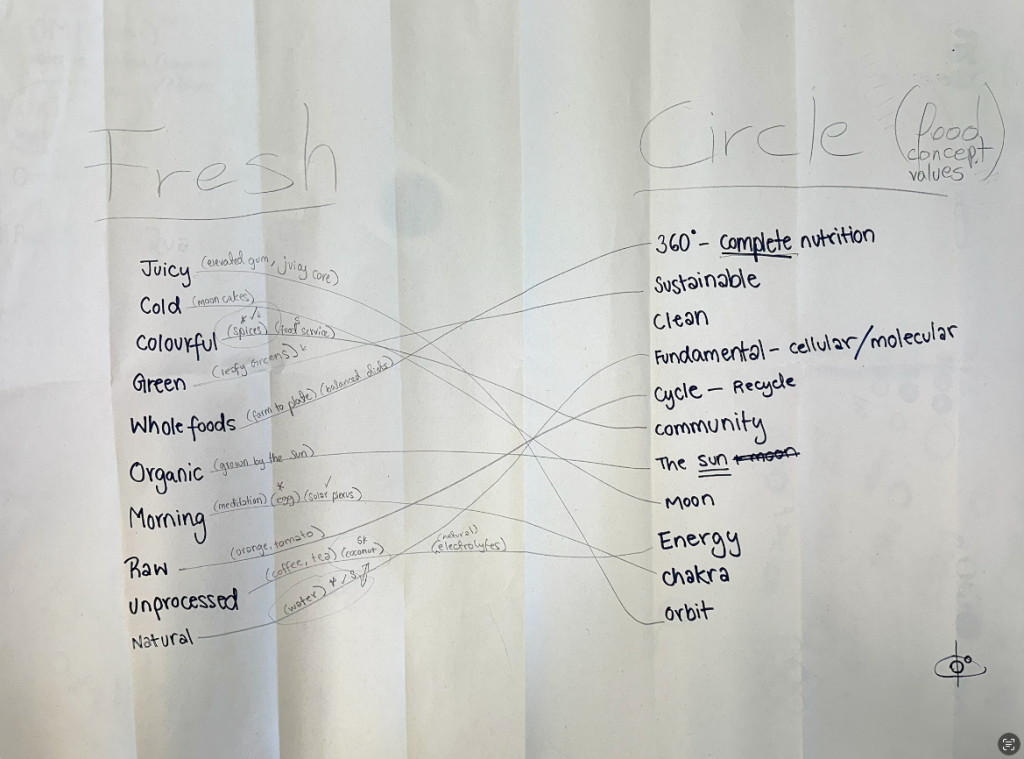 Fresh
Juicy (elevated gum, juicy core)
Cold (moon cakes)
Colourful (spices) (food service)
Green (leafy Greens)
Whole foods (farm to plate) (balanced diets)
Organic (grown by the sun)
Morning (meditation) (egg) (solar plexus)
Raw (orange, tomato)
unprocessed (coffee, tea) (coconut) (natural) (electrolytes)
Natural (water)
Circle (food concept values)
360° - complete nutrition
Sustainable
Clean
Fundamental - cellular/molecular
Cycle - Recycle
community
The sun moon
Moon
Energy
chakra
orbit